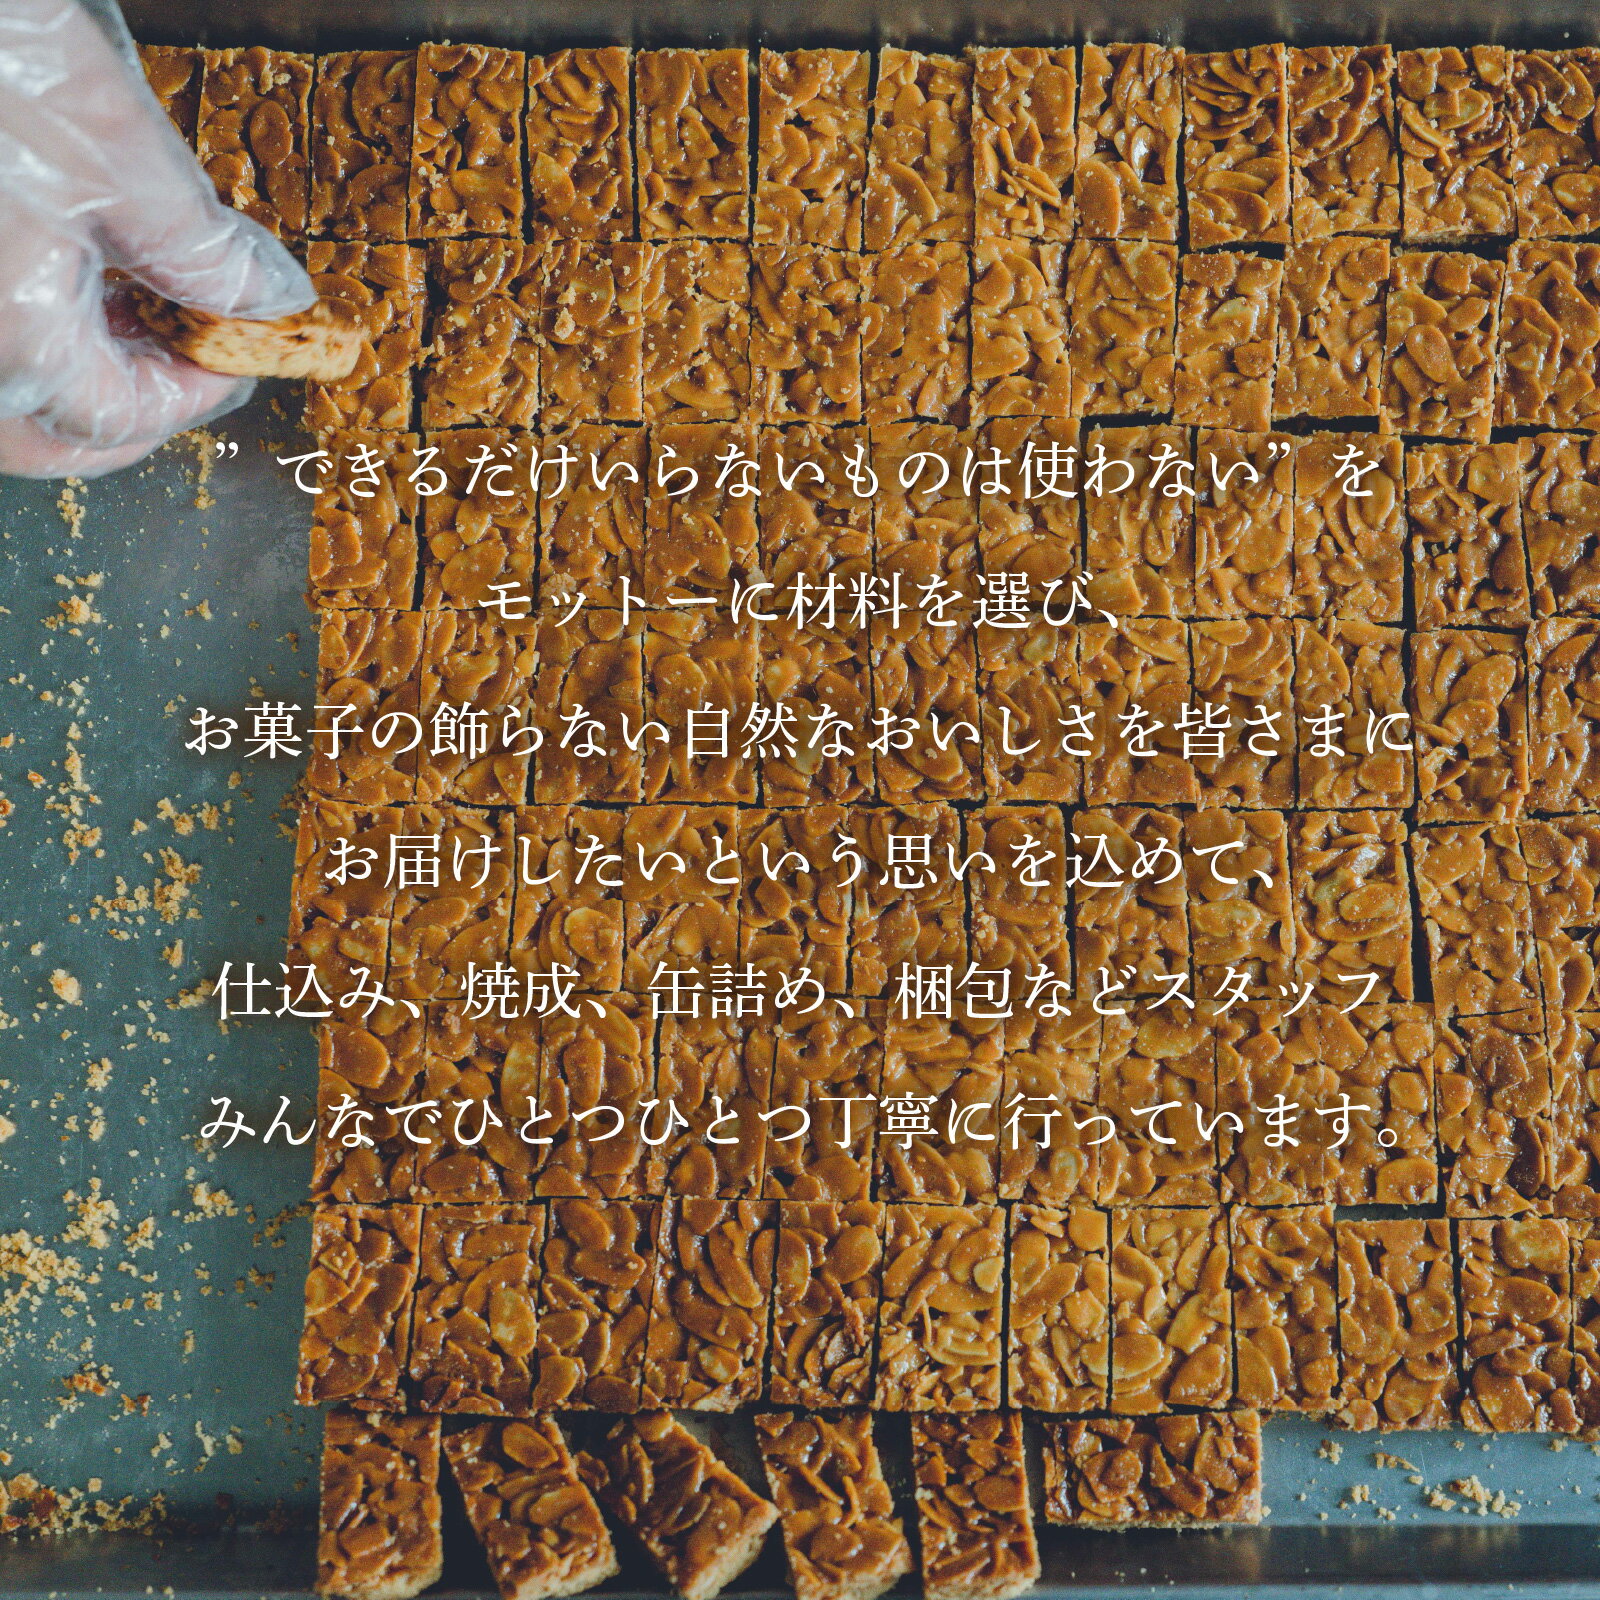 ”できるだけいらないものは使わない”を
モットーに材料を選び、
お菓子の飾らない自然なおいしさを皆さまに
お届けしたいという思いを込めて、
仕込み、焼成、缶詰め、梱包などスタッフ
みんなでひとつひとつ丁寧に行っています。